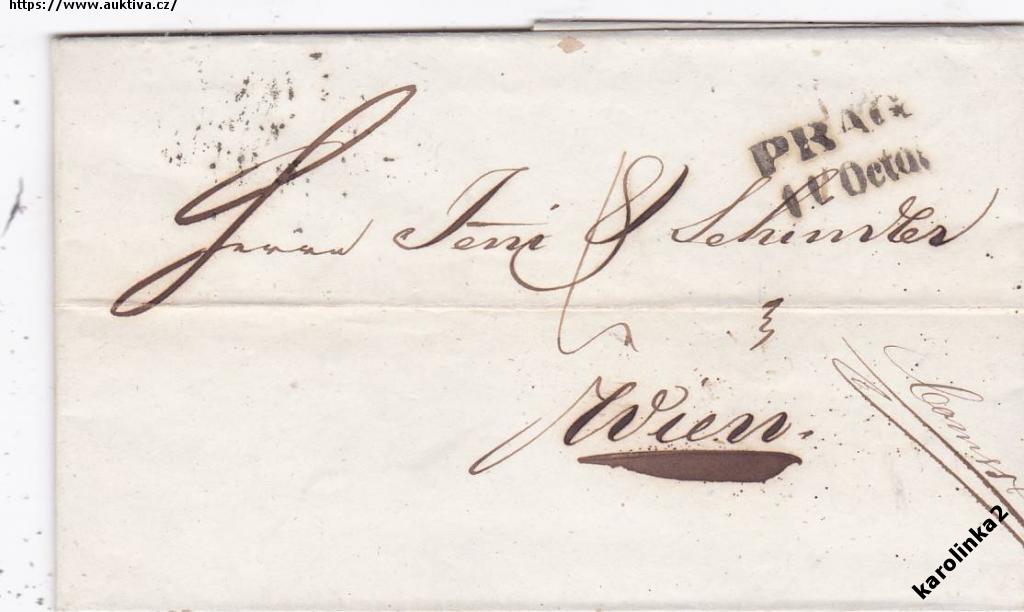 https://www.auktiva.cz/
PRAG
11 Octob
Herrn Jeni & Schindler
Wien.
karolinka2